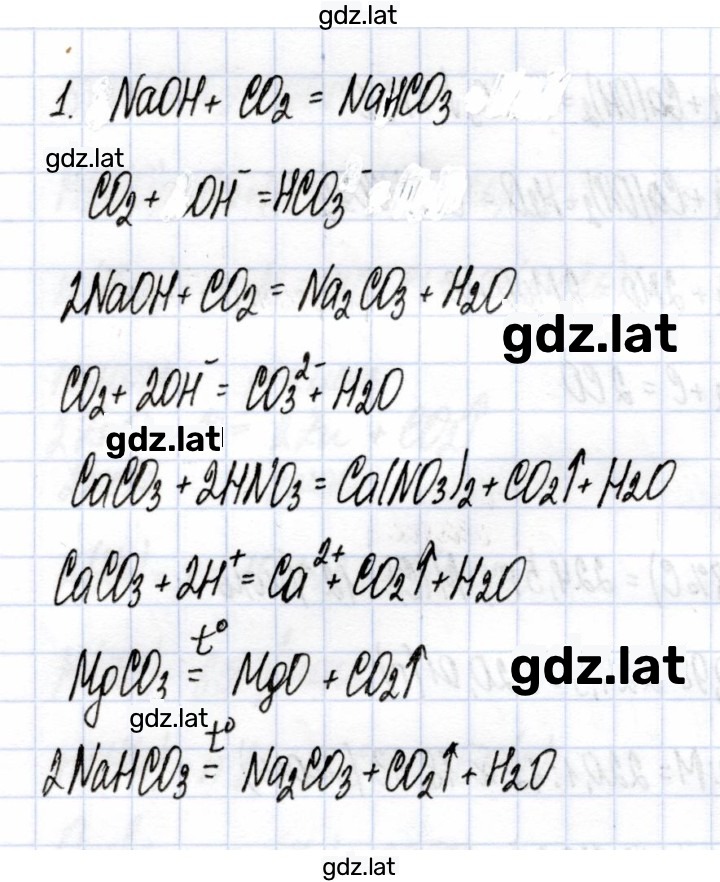 gdz.lat
1. NaOH + CO₂ = NaHCO₃
gdz.lat
CO₂ + OH⁻ = HCO₃⁻
2NaOH + CO₂ = Na₂CO₃ + H₂O
gdz.lat
CO₂ + 2OH⁻ = CO₃²⁻ + H₂O
gdz.lat
CaCO₃ + 2HNO₃ = Ca(NO₃)₂ + CO₂↑ + H₂O
CaCO₃ + 2H⁺ = Ca²⁺ + CO₂↑ + H₂O
t°
MgCO₃ = MgO + CO₂↑
gdz.lat
gdz.lat
t°
2NaHCO₃ = Na₂CO₃ + CO₂↑ + H₂O
gdz.lat